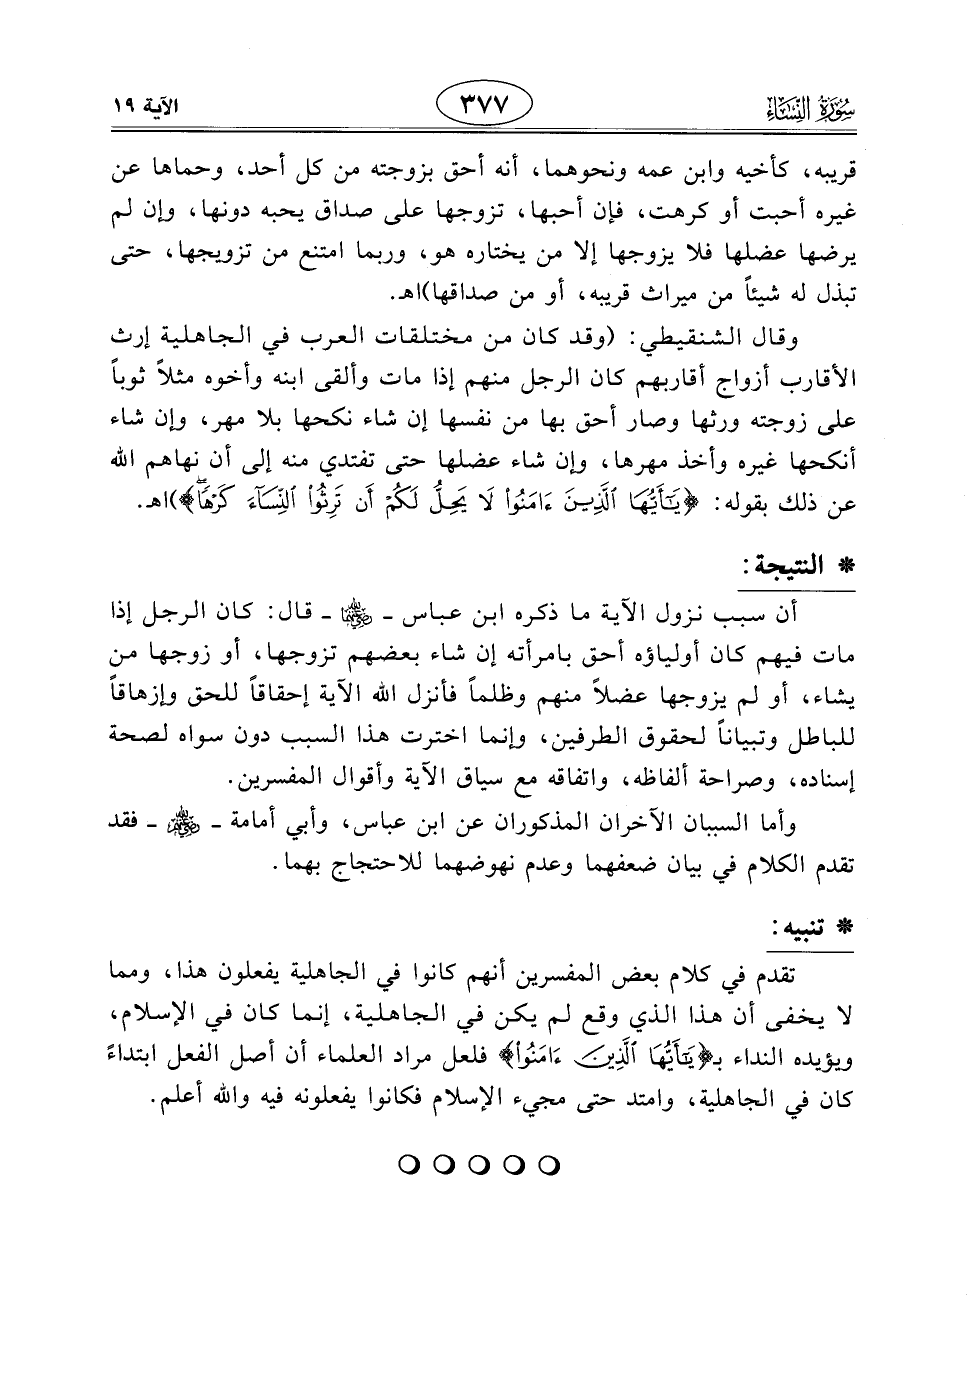 سورة النساء ٣٧٧ الآية ١٩
قريبه، كأخيه وابن عمه ونحوهما، أنه أحق بزوجته من كل أحد، وحماها عن
غيره أحبت أو كرهت، فإن أحبها، تزوجها على صداق يحبه دونها، وإن لم
يرضها عضلها فلا يزوجها إلا من يختاره هو، وربما امتنع من تزويجها، حتى
تبذل له شيئاً من ميراث قريبه، أو من صداقها)اهـ.
وقال الشنقيطي: (وقد كان من مختلقات العرب في الجاهلية إرث
الأقارب أزواج أقاربهم كان الرجل منهم إذا مات وألقى ابنه وأخوه مثلاً ثوباً
على زوجته ورثها وصار أحق بها من نفسها إن شاء نكحها بلا مهر، وإن شاء
أنكحها غيره وأخذ مهرها، وإن شاء عضلها حتى تفتدي منه إلى أن نهاهم الله
عن ذلك بقوله: ﴿يَٰٓأَيُّهَا ٱلَّذِينَ ءَامَنُوا۟ لَا يَحِلُّ لَكُمْ أَن تَرِثُوا۟ ٱلنِّسَآءَ كَرْهًۭا ۖ﴾)اهـ.
* النتيجة:
أن سبب نزول الآية ما ذكره ابن عباس ـ رضي الله عنهما ـ قال: كان الرجل إذا
مات فيهم كان أولياؤه أحق بامرأته إن شاء بعضهم تزوجها، أو زوجها من
يشاء، أو لم يزوجها عضلاً منهم وظلماً فأنزل الله الآية إحقاقاً للحق وإزهاقاً
للباطل وتبياناً لحقوق الطرفين، وإنما اخترت هذا السبب دون سواه لصحة
إسناده، وصراحة ألفاظه، واتفاقه مع سياق الآية وأقوال المفسرين.
وأما السببان الآخران المذكوران عن ابن عباس، وأبي أمامة ـ رضي الله عنهم ـ فقد
تقدم الكلام في بيان ضعفهما وعدم نهوضهما للاحتجاج بهما.
* تنبيه:
تقدم في كلام بعض المفسرين أنهم كانوا في الجاهلية يفعلون هذا، ومما
لا يخفى أن هذا الذي وقع لم يكن في الجاهلية، إنما كان في الإسلام،
ويؤيده النداء بـ﴿يَٰٓأَيُّهَا ٱلَّذِينَ ءَامَنُوا۟﴾ فلعل مراد العلماء أن أصل الفعل ابتداءً
كان في الجاهلية، وامتد حتى مجيء الإسلام فكانوا يفعلونه فيه والله أعلم.